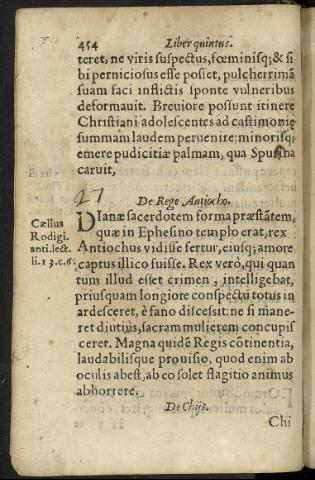 454 Liber quintus.
teret, ne viris suspectus, fœminisq; & si
bi perniciosus esse posset, pulcherrimā
suam faci inflictis sponte vulneribus
deformauit. Breuiore possunt itinere
Christiani adolescentes ad castimonię
summam laudem peruenire: minorisq;
emere pudicitiæ palmam, qua Spurina
caruit,
27
De Rege Antiocho.
DIanæ sacerdotem forma præstātem,
quæ in Ephesino templo erat, rex
Antiochus vidisse fertur, eiusq; amore
captus illico fuisse. Rex verò, qui quan
tum illud esset crimen, intelligebat,
priusquam longiore conspectu totus in
ardesceret, è fano discessit: ne si mane-
ret diutiùs, sacram mulierem concupis
ceret. Magna quidē Regis cōtinentia,
laudabilisque prouisio, quod enim ab
oculis abest, ab eo solet flagitio animus
abhorrere.
Cælius
Rodigi.
anti.lect.
li. 13. c. 6.
De Chijs.
Chi